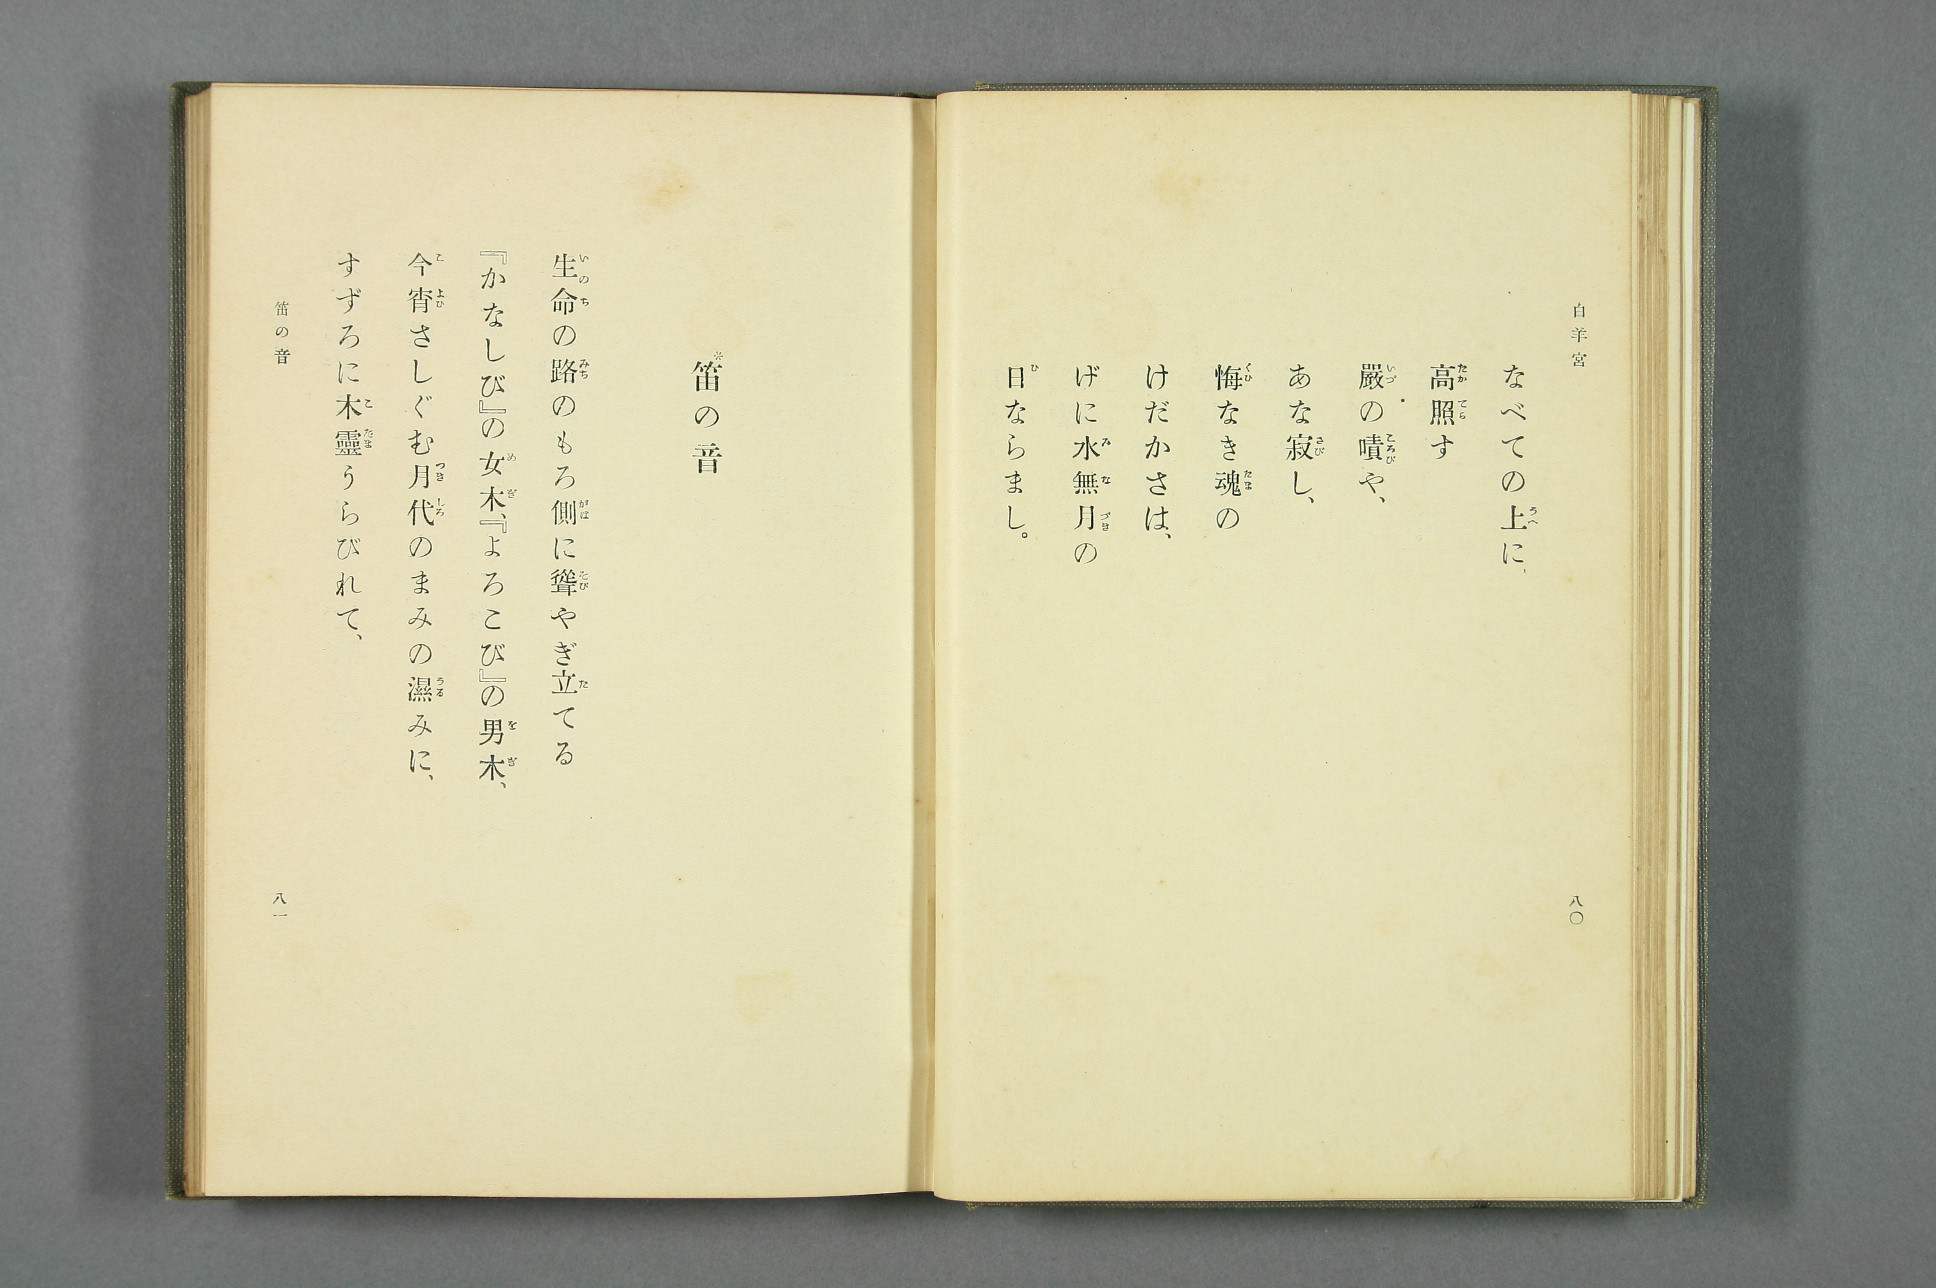 白羊宮
なべての上に、
高照す
嚴の嘖や、
あな寂し、
悔なき魂の
けだかさは、
げに水無月の
日ならまし。
八〇
笛の音
生命の路のもろ側に聳やぎ立てる
『かなしび』の女木、『よろこび』の男木、
今宵さしぐむ月代のまみの濕みに、
すずろに木靈うらびれて、
笛の音
八一